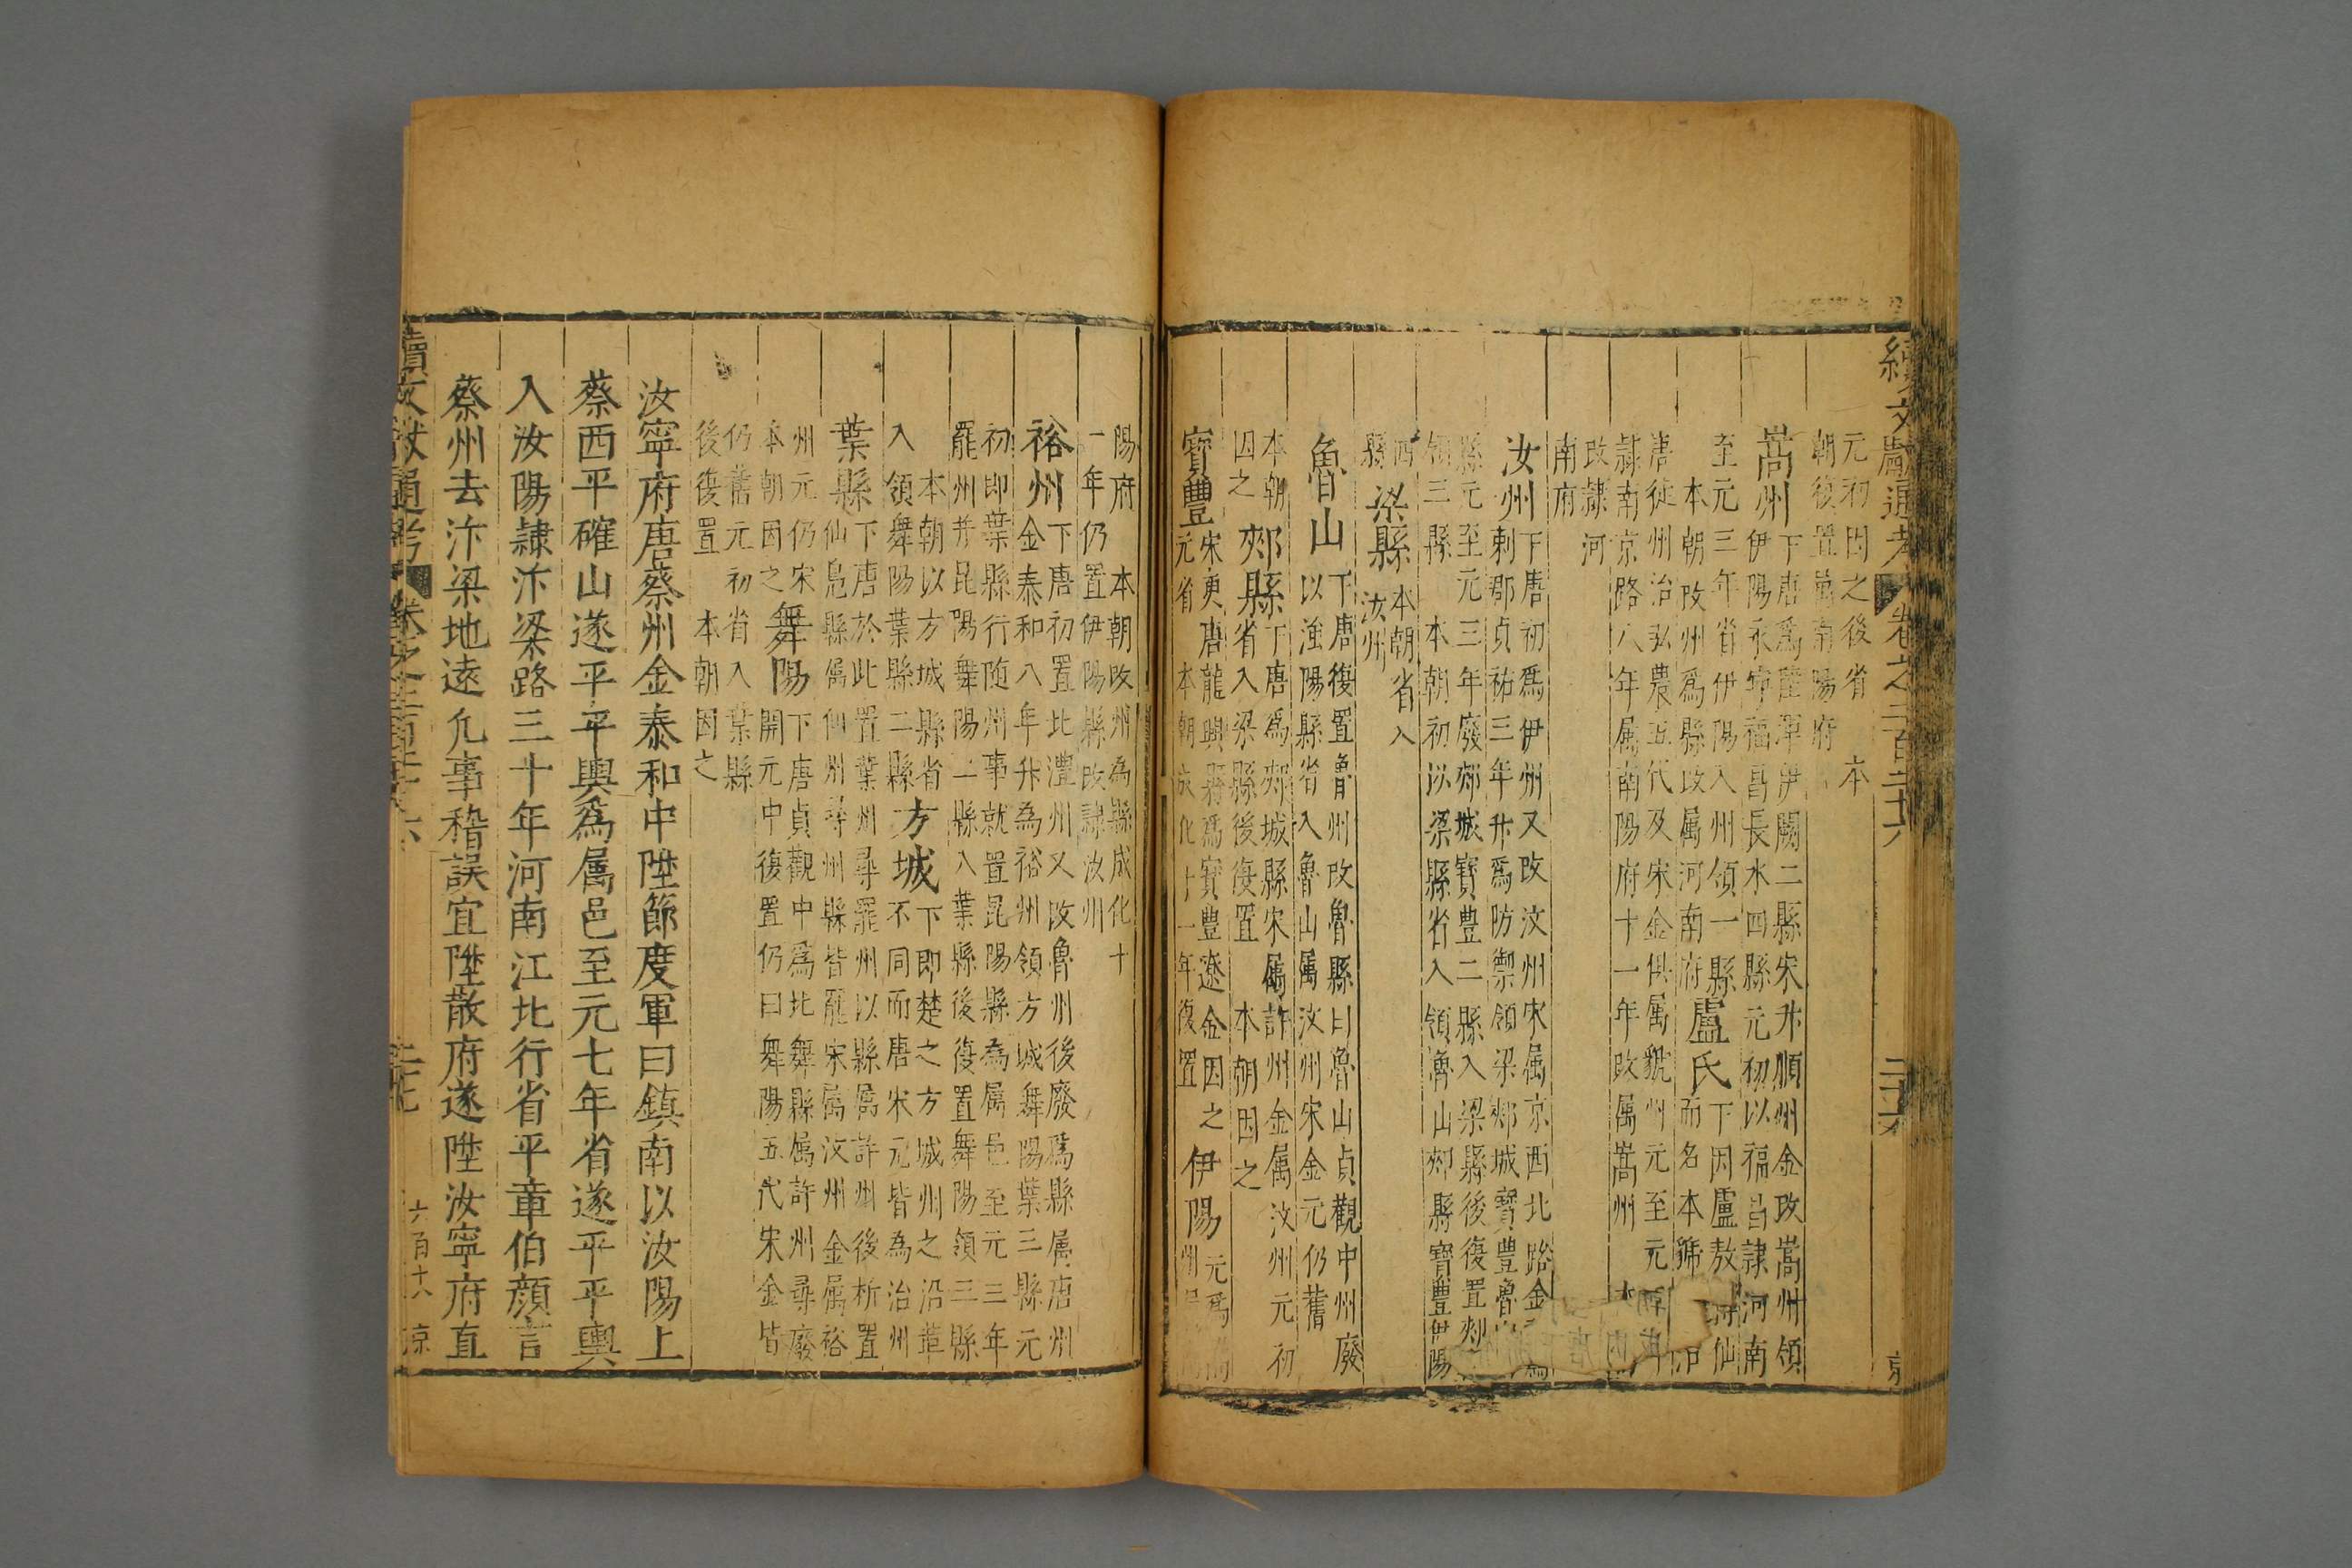 續文獻通考 卷之二百二十六 二十六 京
元初因之後省 本
朝復置屬南陽府
嵩州下唐爲陸渾伊闕二縣宋升順州金改嵩州領
伊陽永寧福昌長水四縣元初以福昌隷河南
至元三年省伊陽入州領一縣
本朝改州爲縣改属河南府
盧氏下因盧敖
而名本號
唐徙州治弘農五代及宋金俱属虢州元至元
隷南京路八年属南陽府十一年改属嵩州
改隷河
南府
汝州下唐初爲伊州又改汝州宋属京西北路金
刺郡貞祐三年升爲防禦領梁郟城寶豐魯山
縣元至元三年廢郟城寶豐二縣入梁縣後復置郟
領三縣 本朝初以梁縣省入領魯山郟縣寶豐伊陽
四
縣
梁縣本朝省入
汝州
魯山下唐復置魯州改魯縣曰魯山貞觀中州廢
以滍陽縣省入魯山属汝州宋金元仍舊
本朝
因之
郟縣下唐爲郟城縣宋属許州金属汝州元初
省入梁縣後復置 本朝因之
寶豐宋更唐龍興縣爲寶豐遼金因之
元省 本朝成化十一年復置
伊陽元爲
州
陽府 本朝改州為縣成化十
一年仍置伊陽縣改隷汝州
裕州下唐初置北澧州又改魯州後廢爲縣属唐州
金泰和八年升為裕州領方城舞陽葉三縣元
初即葉縣行随州事就置昆陽縣為属邑至元三年
罷州并昆陽舞陽二縣入葉縣後復置舞陽領三縣
本朝以方城縣省
入領舞陽葉縣二縣
方城下即楚之方城州之沿革
不同而唐宋元皆為治州
葉縣下唐於此置葉州尋罷州以縣属許州後析置
仙鳬縣属仙州尋州縣皆罷宋属汝州金属裕
州元仍宋
本朝因之
舞陽下唐貞觀中爲北舞縣属許州尋廢
開元中復置仍曰舞陽五代宋金皆
仍舊元初省入葉縣
後復置 本朝因之
汝寧府唐蔡州金泰和中陞節度軍曰鎮南以汝陽上
蔡西平確山遂平平輿爲属邑至元七年省遂平平輿
入汝陽隷汴梁路三十年河南江北行省平章伯顏言
蔡州去汴梁地遠凡事稽誤宜陞散府遂陞汝寧府直
續文獻通考 卷之二百二十六 二十七 六百十八 京